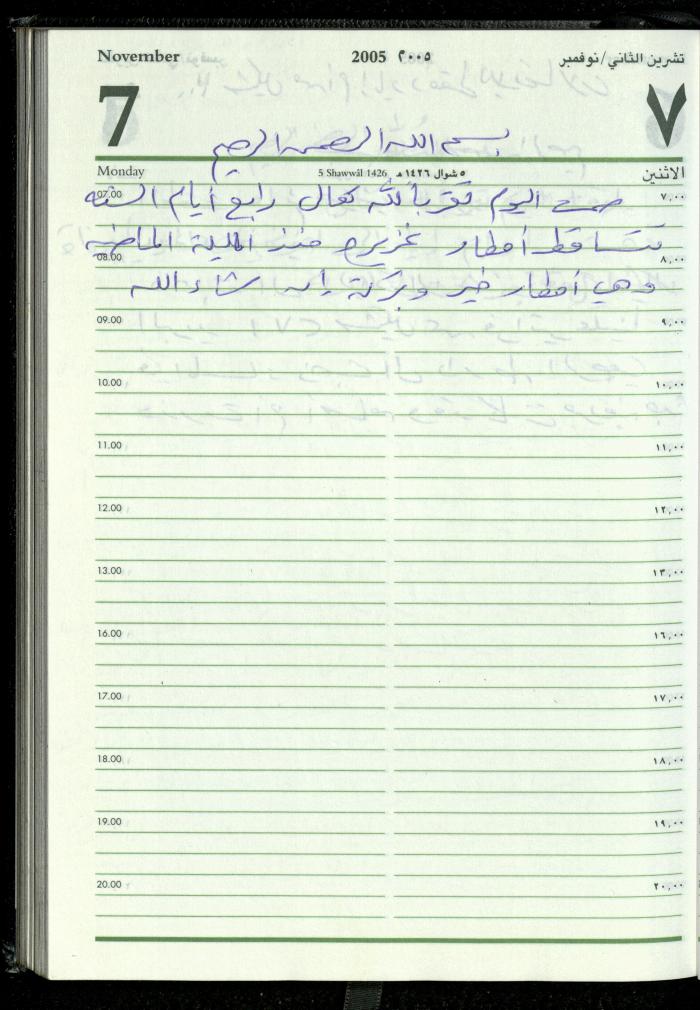 November 2005 ٢٠٠٥ تشرين الثاني/نوفمبر
7 ٧
بسم الله الرحمن الرحيم
Monday 5 Shawwāl 1426 ٥ شوال ١٤٢٦ هـ الاثنين
07.00 ٧,٠٠
صمت اليوم تقرباً لله تعالى رابع أيام الستة
تتساقط أمطار غزيرة منذ الليلة الماضية
08.00 ٨,٠٠
وهي أمطار خير وبركة إن شاء الله
09.00 ٩,٠٠
10.00 ١٠,٠٠
11.00 ١١,٠٠
12.00 ١٢,٠٠
13.00 ١٣,٠٠
16.00 ١٦,٠٠
17.00 ١٧,٠٠
18.00 ١٨,٠٠
19.00 ١٩,٠٠
20.00 ٢٠,٠٠